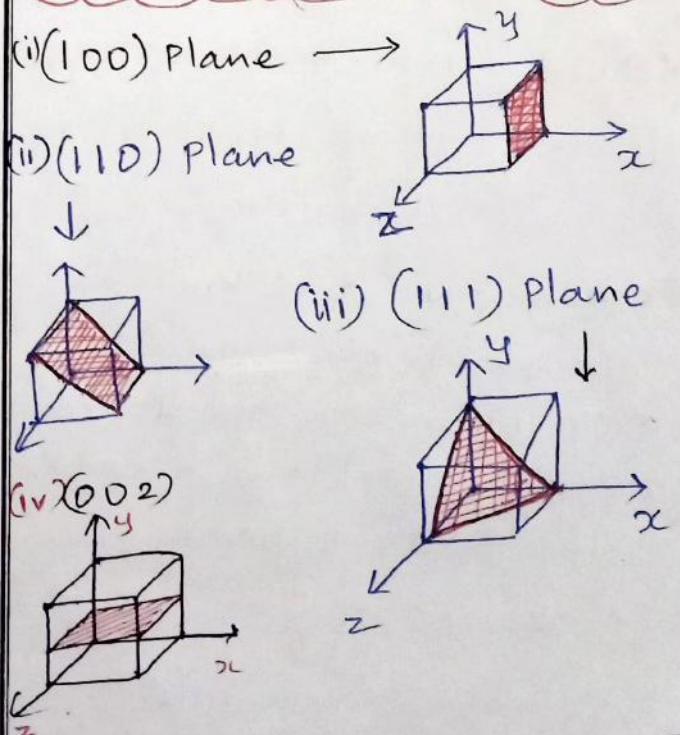 (i) (100) Plane
y
x
z
(ii) (110) Plane
(iii) (111) Plane
y
x
z
(iv) (002)
y
x
z